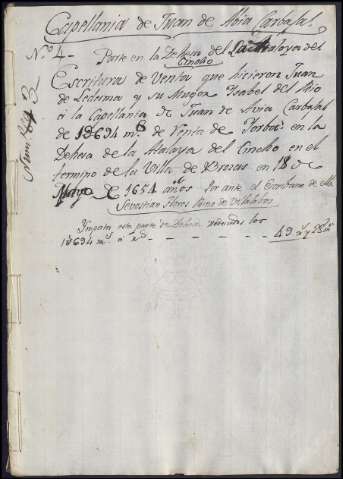 Capellania de Juan de Abia Carbajal.
N.º 4 - Parte en la Dehesa del Atalaya del
Cincho
Escritura de Venta que hicieron Juan
de Ledesma y su Muger Ysabel del Rio
á la Capillania de Juan de Avia Carbajal
de 1D694 m.s de Venta de Yerba en la
Dehesa de la Atalaya del Cincho en el
termino de la Villa de Brozas en 18 de
Mayo de 1654 años Por ante el Escribano de ella
Sevastian Flores
Importa esta parte de Dehesa reducidos los
1D694 m.s á r.s - - - - - - 49 r.s y 28 m.s